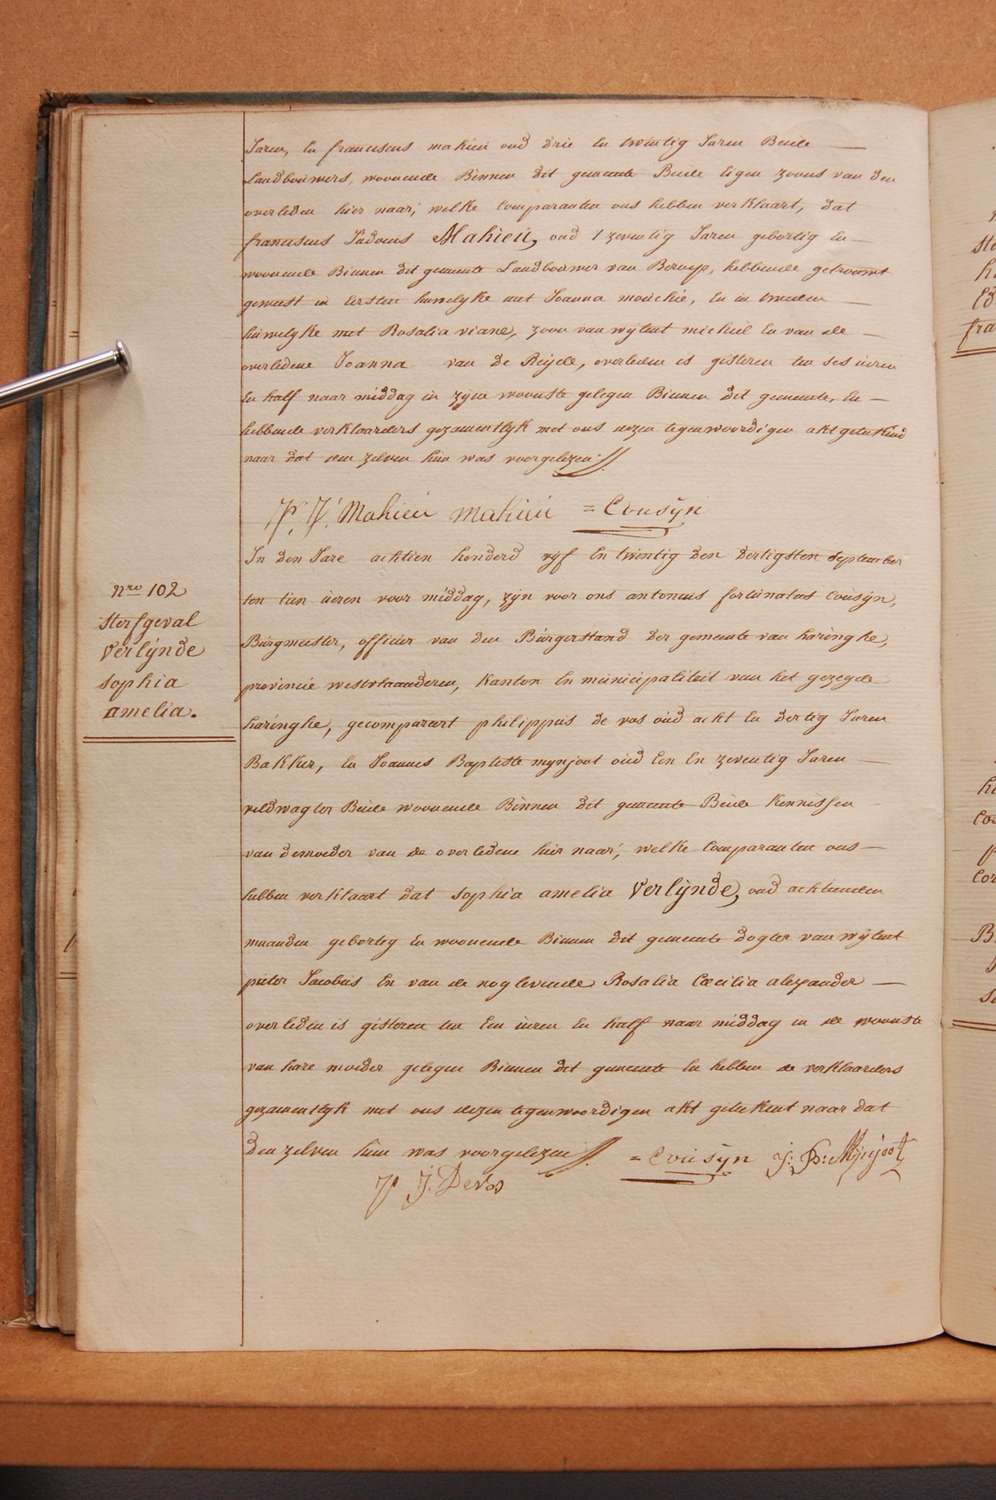 Jaren, en franciscus mahieu oud drie en twintig Jaren Beide
Landbouwers, woonende Binnen dit gemeente Beide eigen zoons van den
overleden hier naar; welke Comparanten ons hebben verklaart, dat
franciscus Tadeus Mahieu, oud zeventig Jaren gebortig en
woonende Binnen dit gemeente Landbouwer van Beroep, hebbende getrouwt
geweest in Eersten huwelyke met Joanna, En in tweeden
huwelyke met Rosalia viane, zoon van wylent michiel En van de
overledene Joanna van De Reijele, overleden is gisteren ten ses ueren
En half naar middag in zyne woonste gelegen Binnen dit gemeente, En
hebbende verklaarders gezamentlyk met ons dezen tegenwoordigen akt getekend
naar dat den zelven hun was voorgelezen
P. J. Mahieu mahieu = Cousÿn
Nro 102
sterfgeval
Verlÿnde
sophia
amelia.
In den Jare achtien honderd vyf En twintig den dertigsten september
ten tien ueren voor middag, zyn voor ons antonius fortunatus Cousÿn,
Burgmeester, officier van den Burgerstand der gemeente van haringhe,
provincie westvlaanderen, Kanton En municipaliteit van het gezegde
haringhe, gecomparart philippus de vos oud acht En dertig Jaren
Bakker, En Joannes Baptiste mynjoot oud Een En zeventig Jaren
veldwagter Beide woonende Binnen dit gemeente Beide Kennissen
van demoeder van de overledene hier naar; welke Comparanten ons
hebben verklaart dat sophia amelia Verlÿnde, oud achtienden
maanden gebortig En woonende Binnen dit gemeente dogter van wÿlent
pieter Jacobus En van de noglevende Rosalia Cœcilia alexander
overleden is gisteren ten Een ueren En half naar middag in de woonste
van hare moeder gelegen Binnen dit gemeente En hebben de verklaarders
gezamentlyk met ons dezen tegenwoordigen akt getekent naar dat
den zelven hun was voorgelezen = Cousÿn J: B: Mijnjoot
P J. Devos